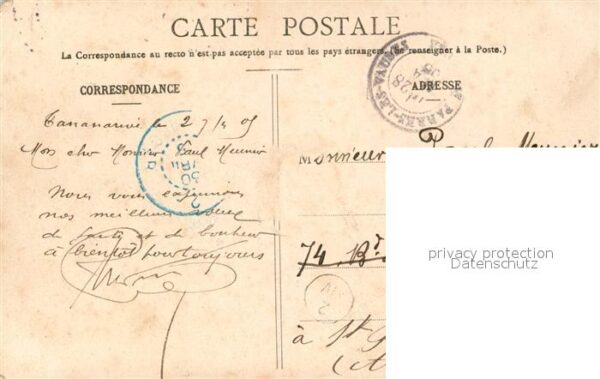 CARTE POSTALE
La Correspondance au recto n'est pas acceptée par tous les pays étrangers. (Se renseigner à la Poste.)
CORRESPONDANCE
ADRESSE
Tananarive le
Mon cher Monsieur Paul Meunier
Nous vous exprimons
nos meilleurs voeux
de santé et de bonheur
à bientôt pour toujours
Monsieur Paul Meunier
74 Bd
à St
privacy protection
Datenschutz